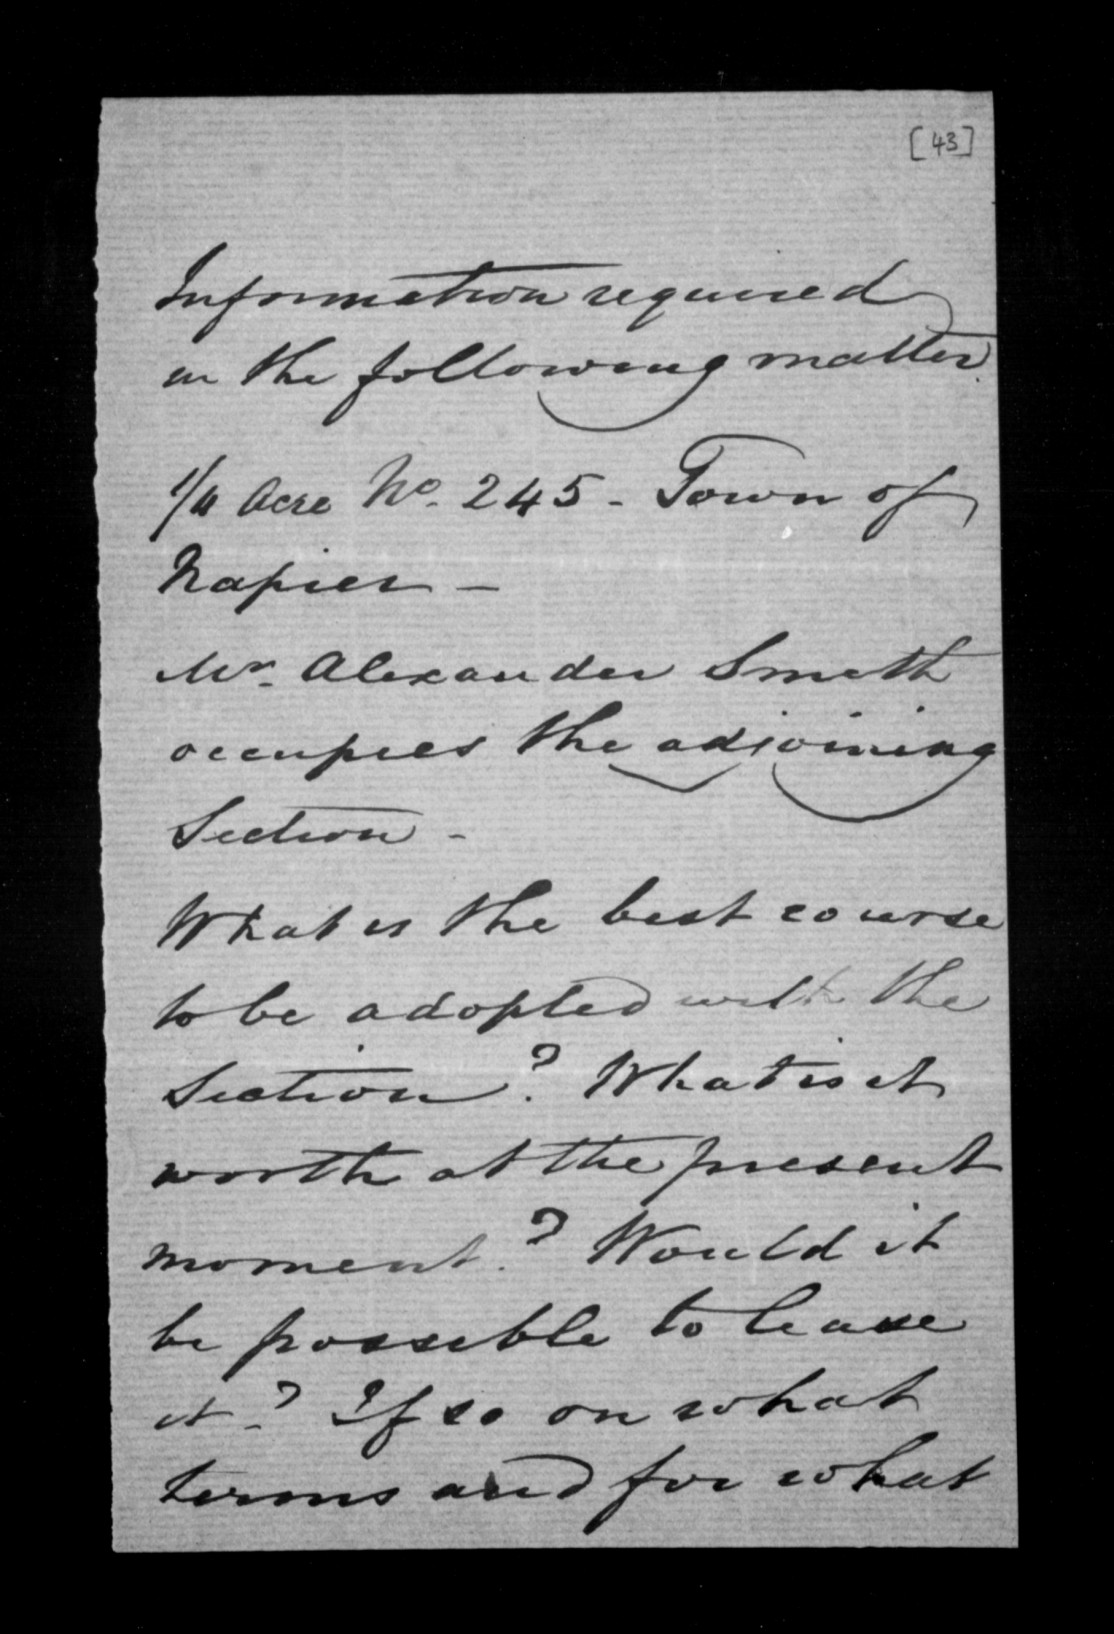 [43]
Information required
in the following matter.
1/4 Acre No. 245 - Town of
Napier -
Mr. Alexander Smith
occupies the adjoining
Section -
What is the best course
to be adopted with the
Section? What is it
worth at the present
moment? Would it
be possible to lease
it? If so on what
terms and for what